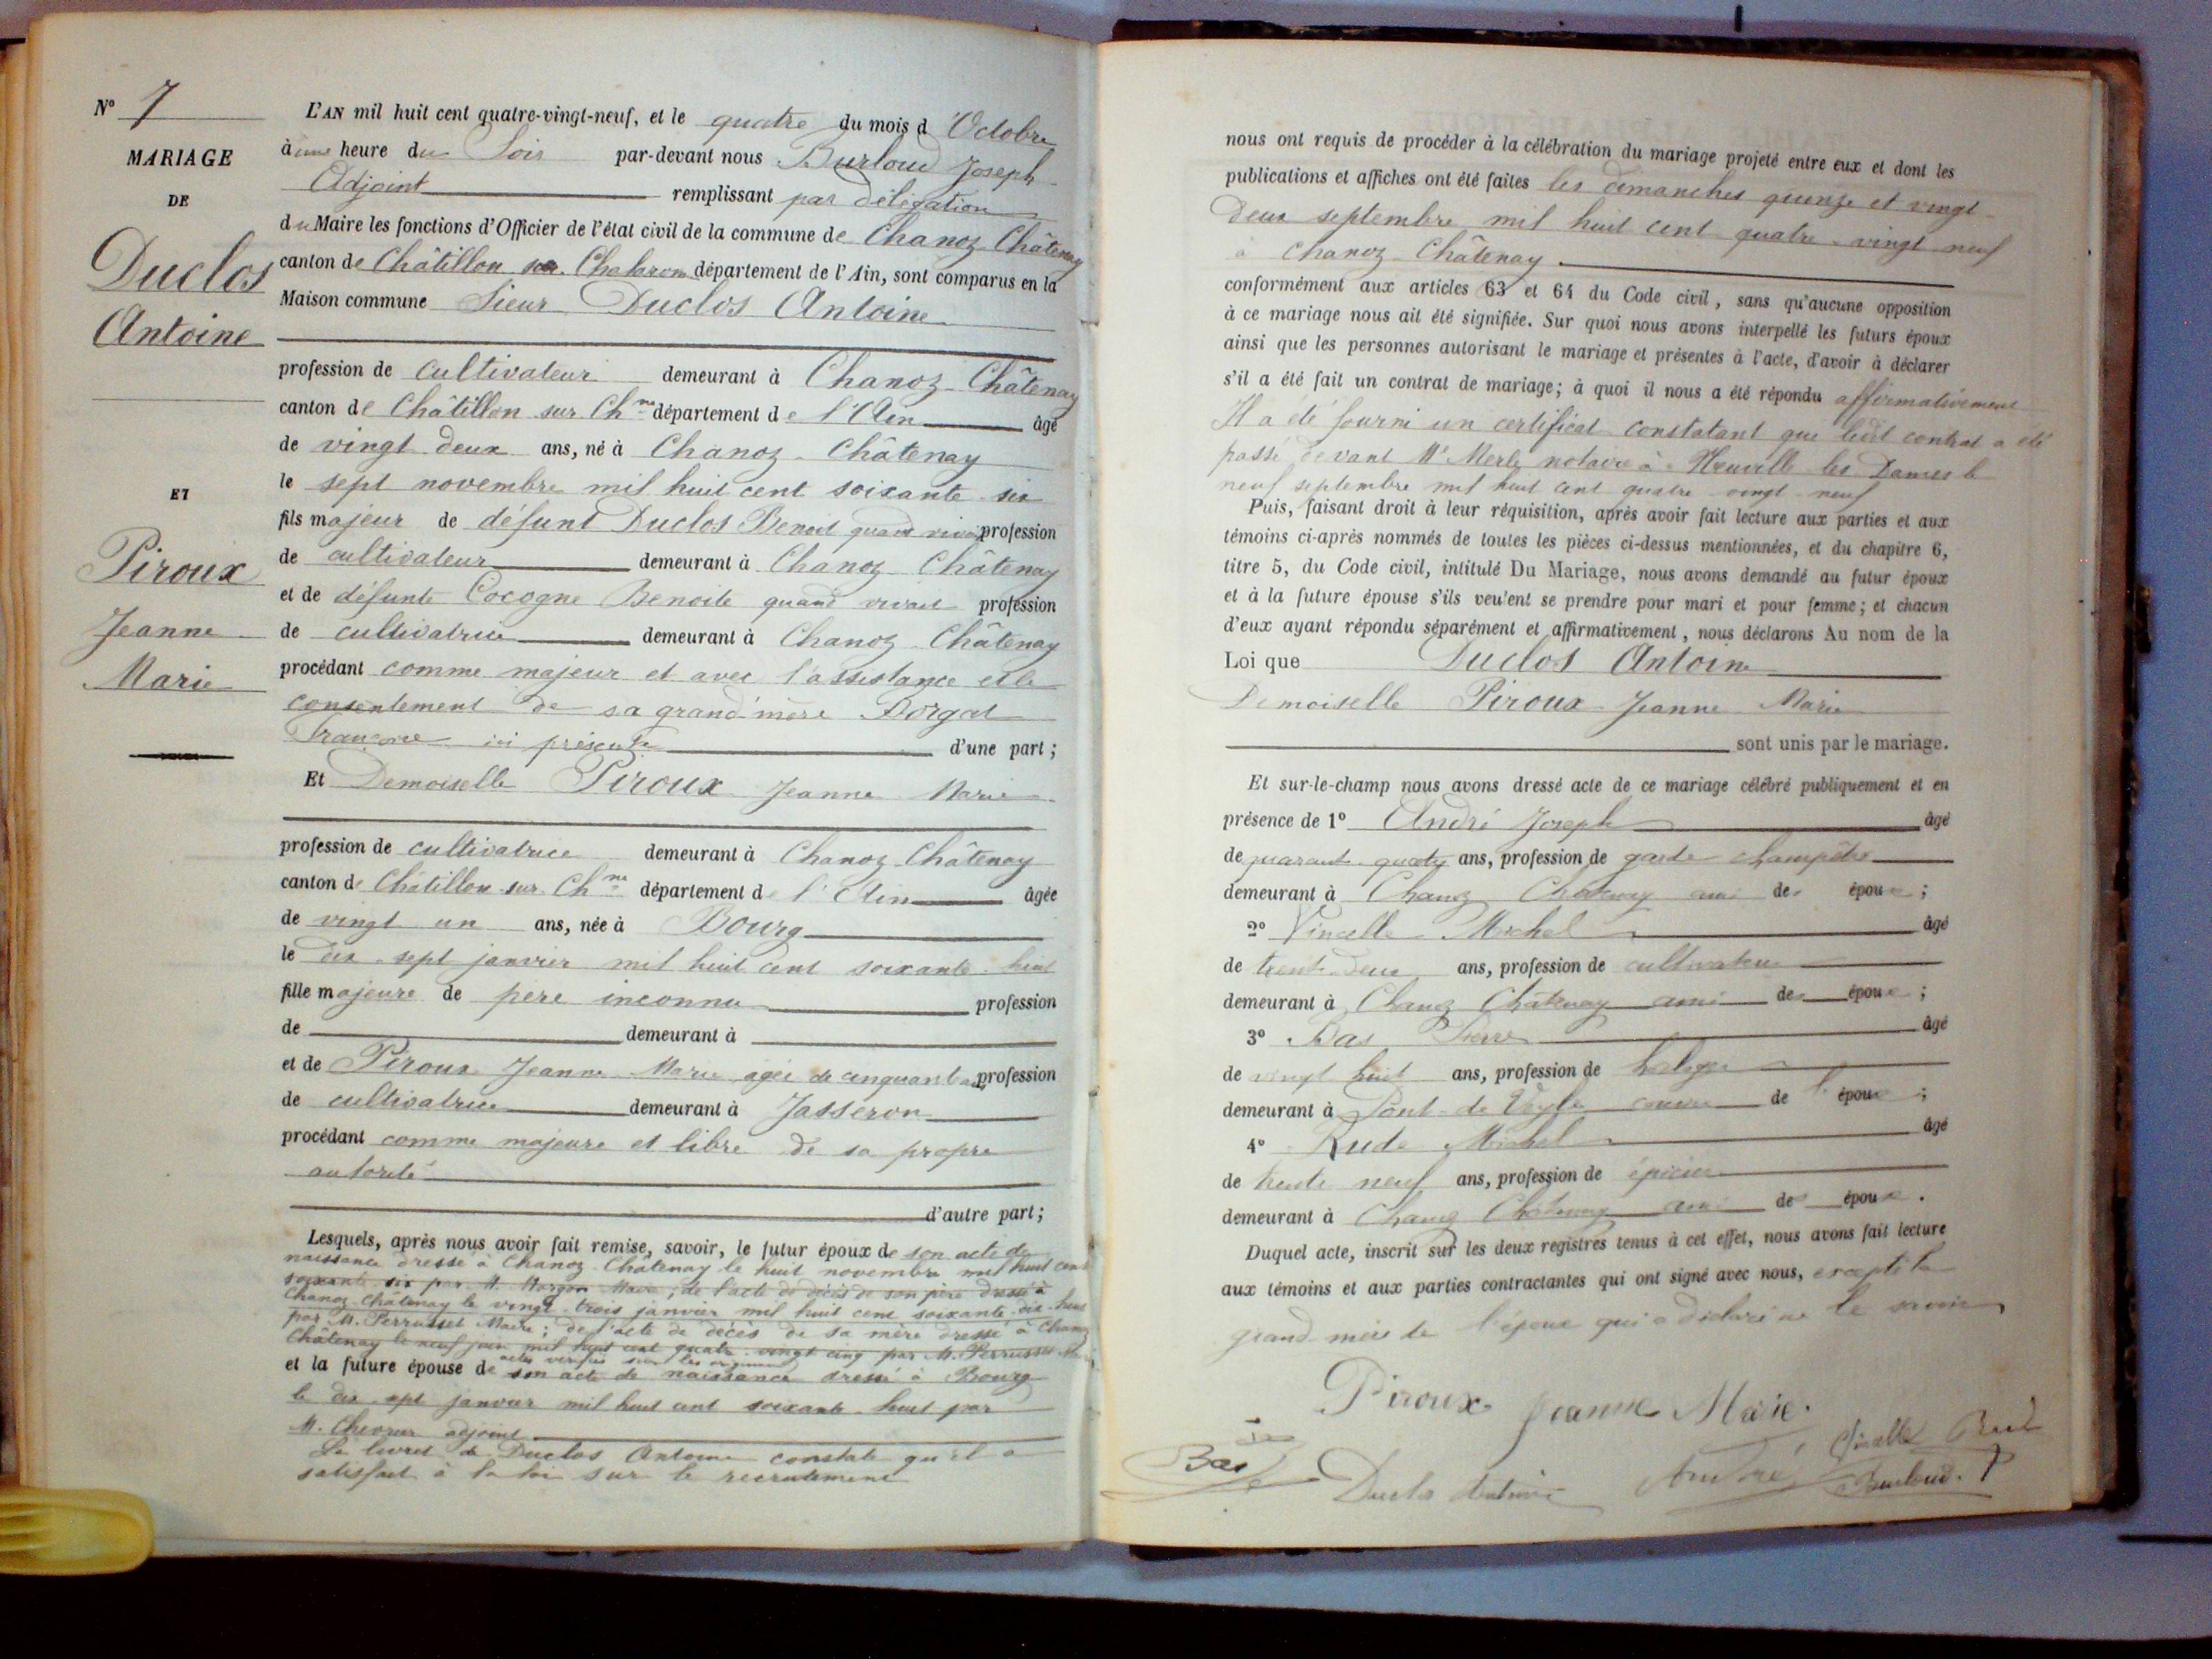 N° 7
MARIAGE
DE
Duclos
Antoine
ET
Piroux
Jeanne
Marie
L'AN mil huit cent quatre-vingt-neuf, et le quatre du mois d'Octobre
à une heure du Soir par-devant nous Burloud Joseph
Adjoint remplissant par délégation
du Maire les fonctions d'Officier de l'état civil de la commune de Chanoz-Châtenay
canton de Châtillon sur Chalaronne département de l'Ain, sont comparus en la
Maison commune Sieur Duclos Antoine
profession de cultivateur demeurant à Chanoz-Châtenay
canton de Châtillon sur Chne département de l'Ain âgé
de vingt deux ans, né à Chanoz-Châtenay
le sept novembre mil huit cent soixante six
fils majeur de défunt Duclos Benoit quand vivait profession
de cultivateur demeurant à Chanoz Châtenay
et de défunte Cocogne Benoite quand vivait profession
de cultivatrice demeurant à Chanoz-Châtenay
procédant comme majeur et avec l'assistance et le
consentement de sa grand'mère Dorgat
Françoise ici présente d'une part;
Et Demoiselle Piroux Jeanne Marie
profession de cultivatrice demeurant à Chanoz Châtenay
canton de Châtillon-sur-Chne département de l'Ain âgée
de vingt un ans, née à Bourg
le dix-sept janvier mil huit cent soixante-huit
fille majeure de père inconnu profession
de demeurant à
et de Piroux Jeanne Marie agée de cinquante ans profession
de cultivatrice demeurant à Jasseron
procédant comme majeure et libre de sa propre
autorité
d'autre part;
Lesquels, après nous avoir fait remise, savoir, le futur époux de son acte de
naissance dressé à Chanoz-Châtenay le huit novembre mil huit cent
soixante six par M. Morgon Maire; de l'acte de décès de son père dressé à
Chanoz-Châtenay le vingt-trois janvier mil huit cent soixante-dix-huit
par M. Perrusset Maire; de l'acte de décès de sa mère dressé à Chanoz
Châtenay le neuf juin mil huit cent quatre-vingt cinq par M. Perrusset
actes vérifiés sur les
et la future épouse de son acte de naissance dressé à Bourg
le dix-sept janvier mil huit cent soixante-huit par
M. Chevrier adjoint
Le livret de Duclos Antoine constate qu'il a
satisfait à la loi sur le recrutement
nous ont requis de procéder à la célébration du mariage projeté entre eux et dont les
publications et affiches ont été faites les dimanches quinze et vingt-
deux septembre mil huit cent quatre-vingt neuf
à Chanoz-Châtenay.
conformément aux articles 63 et 64 du Code civil, sans qu'aucune opposition
à ce mariage nous ait été signifiée. Sur quoi nous avons interpellé les futurs époux
ainsi que les personnes autorisant le mariage et présentes à l'acte, d'avoir à déclarer
s'il a été fait un contrat de mariage; à quoi il nous a été répondu affirmativement
Il a été fourni un certificat constatant que ledit contrat a été
passé devant Me Merle notaire à Neuville les Dames le
neuf septembre mil huit cent quatre-vingt-neuf
Puis, faisant droit à leur réquisition, après avoir fait lecture aux parties et aux
témoins ci-après nommés de toutes les pièces ci-dessus mentionnées, et du chapitre 6,
titre 5, du Code civil, intitulé Du Mariage, nous avons demandé au futur époux
et à la future épouse s'ils veulent se prendre pour mari et pour femme; et chacun
d'eux ayant répondu séparément et affirmativement, nous déclarons Au nom de la
Loi que Duclos Antoine
Demoiselle Piroux Jeanne Marie
sont unis par le mariage.
Et sur-le-champ nous avons dressé acte de ce mariage célébré publiquement et en
présence de 1° André Joseph âgé
de quarante quatre ans, profession de garde champêtre
demeurant à Chanoz Châtenay ami des époux;
2° Vincelle Michel âgé
de trente-deux ans, profession de cultivateur
demeurant à Chanoz Châtenay ami des époux;
3° Bas Pierre âgé
de vingt huit ans, profession de horloger
demeurant à Pont-de-Veyle de l'époux;
4° Rude Michel âgé
de trente neuf ans, profession de épicier
demeurant à Chanoz Châtenay ami des époux.
Duquel acte, inscrit sur les deux registres tenus à cet effet, nous avons fait lecture
aux témoins et aux parties contractantes qui ont signé avec nous, excepté la
grand mère de l'époux qui a déclaré ne le savoir
Piroux Jeanne Marie.
Bas Duclos Antoine André Vincelle Rude
Burloud. J